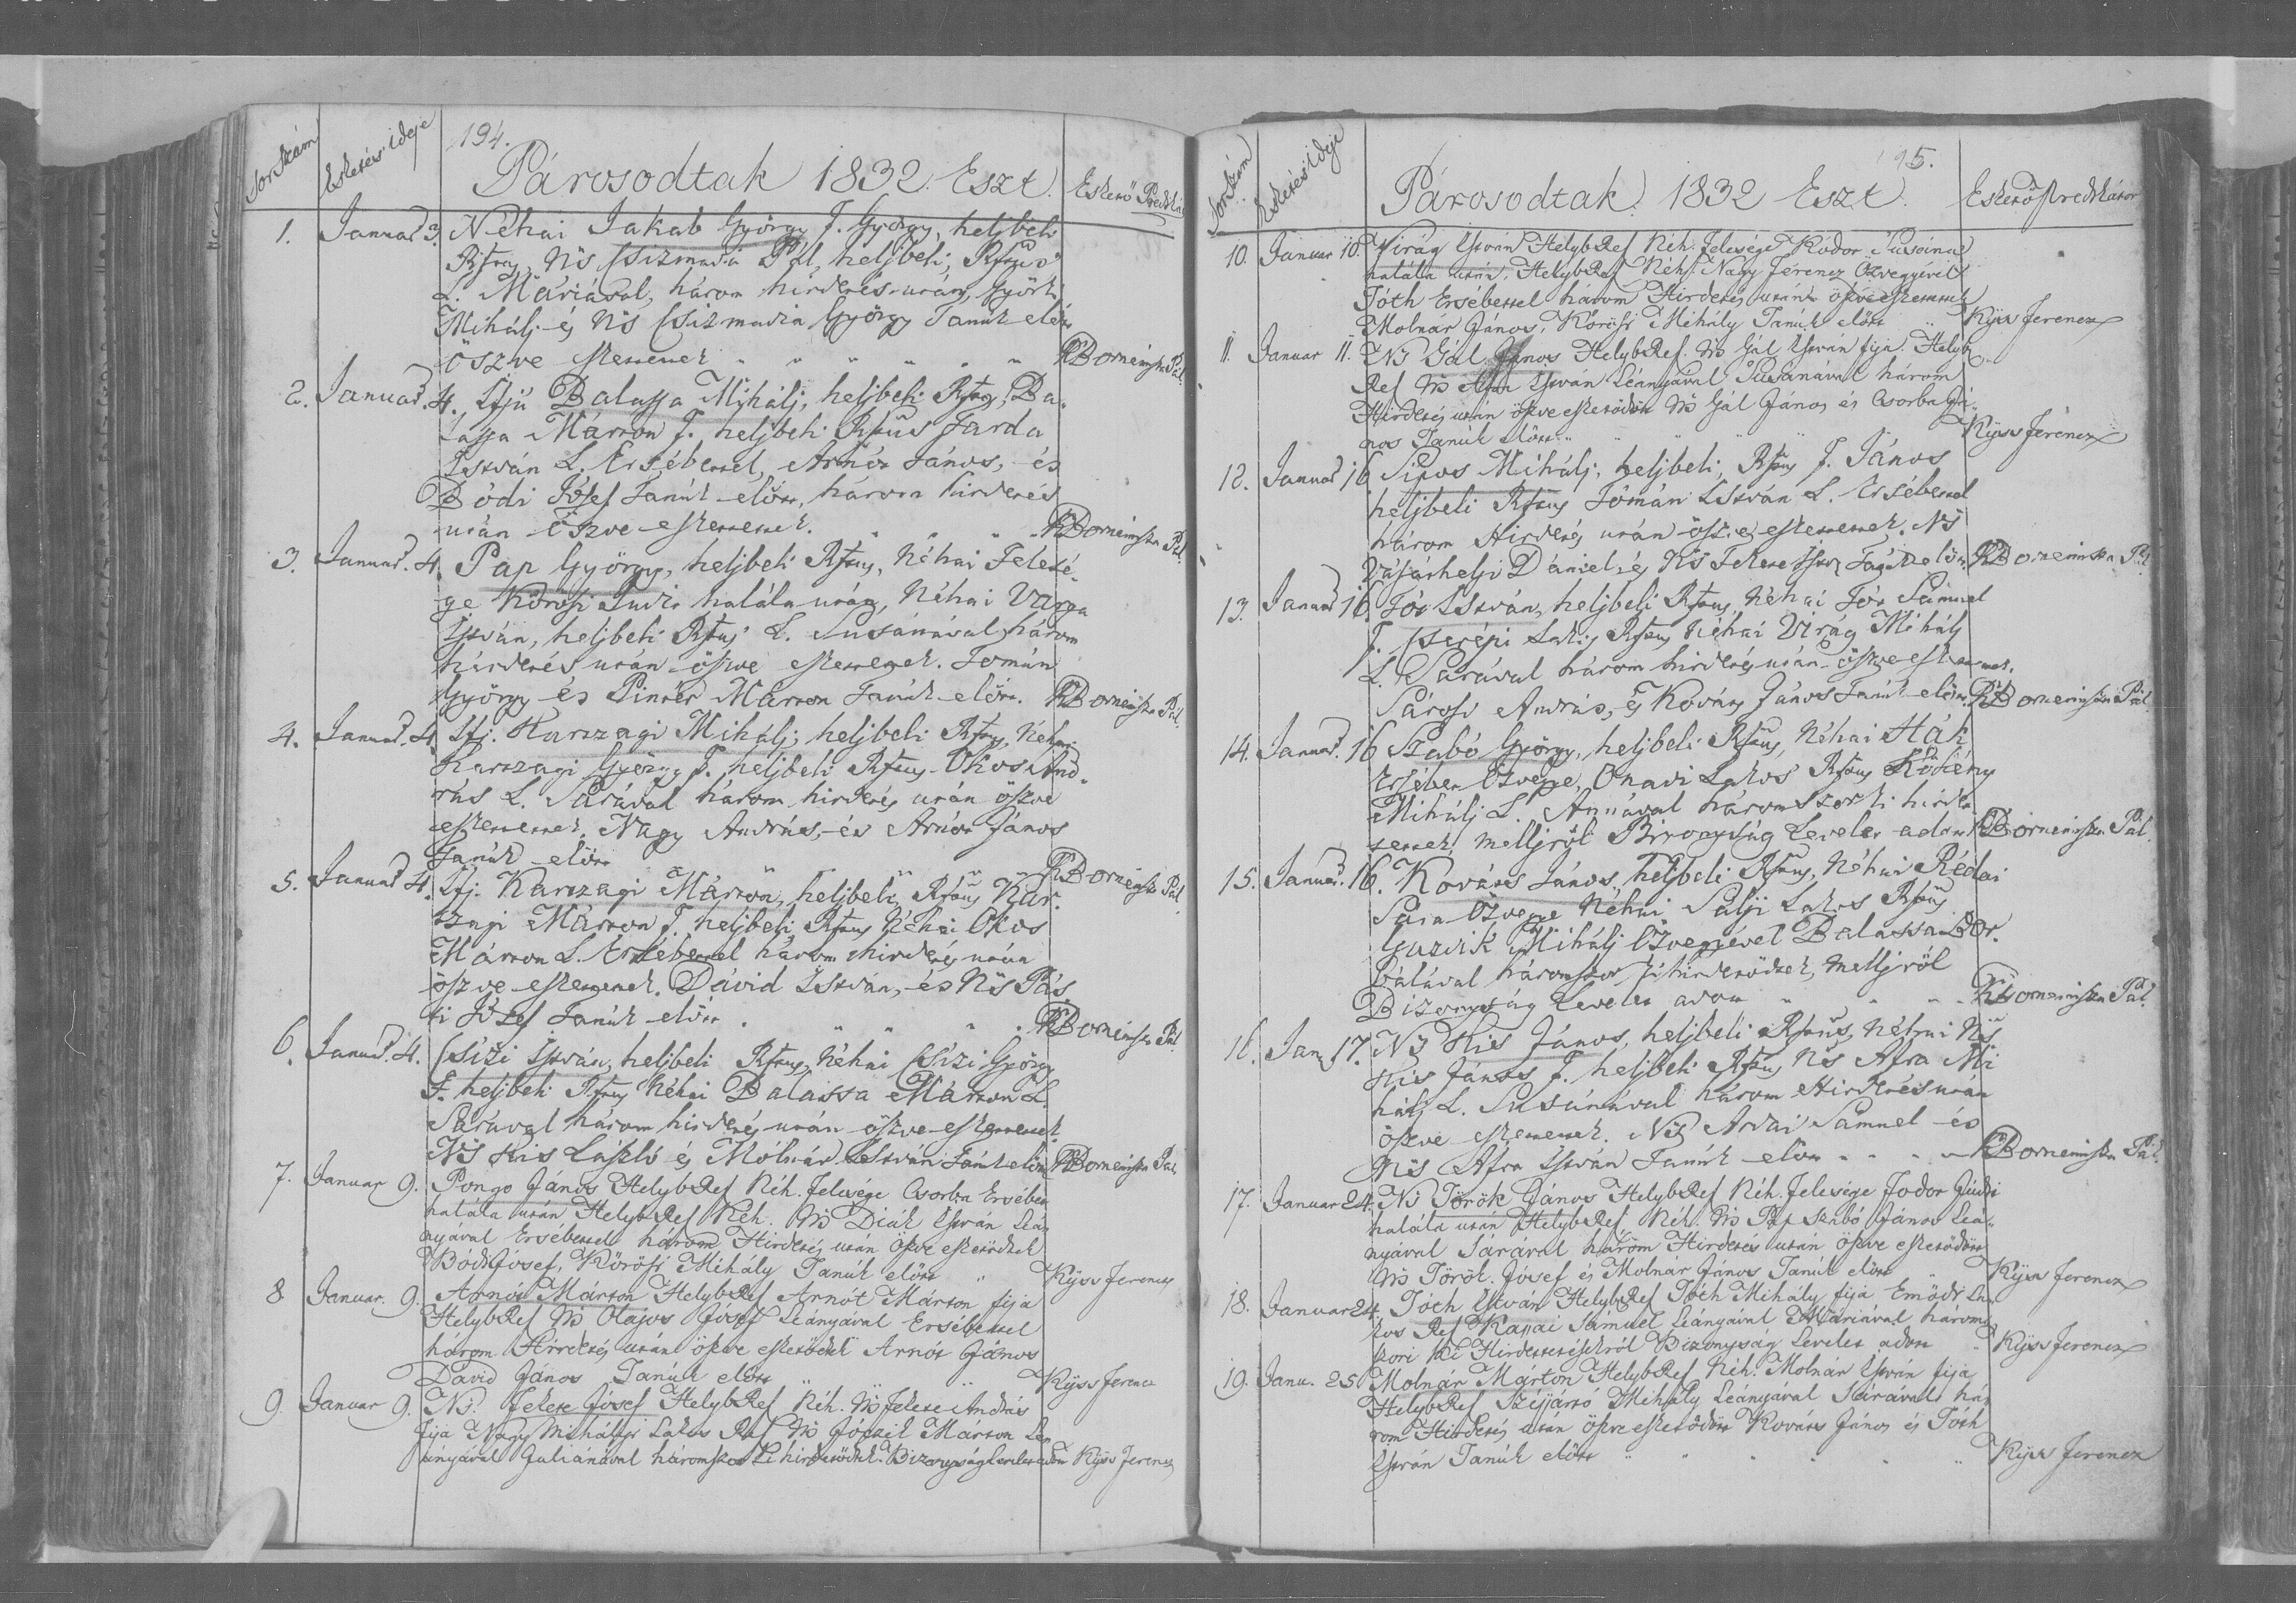 Sor Szám
Esketés ideje
194.
Párosodtak 1832. Eszt.
Eskető Prédik
1. Januar 3. Néhai Jakab György F. György, heljbeli
Rftus, Ns Csizmadia Pál, heljbeli, Rftus
L. Máriával, három hirdetés után, Györfi
Mihálj és Ns Csizmadia György Tanúk előtt
öszve eskettettek " " " " " Bornemisza Pál
2. Januar. 4. Ifjú Balassa Mihálj, heljbeli Rftus, Ba-
lassa Márton F. heljbeli Rftus Farda
István L. Ersébettel, Arnót János, és
Bódi Jósef Tanúk előtt, három hirdetés
után öszve eskettettek. " " " Bornemisza Pál
3. Januar. 4. Pap György, heljbeli Rftus, Néhai Felesé-
ge Körösi Judit halála után, Néhai Varga
István, heljbeli Rftus L. Susánával három
hirdetés után öszve eskettettek. Tomán
György és Pintér Márton Tanúk előtt. Bornemisza Pál
4. Januar. 4. Ifj. Karczagi Mihálj, heljbeli Rftus, Néhai
Karczagi György F. heljbeli Rftus Okos And-
rás L. Sárával három hirdetés után öszve
eskettettek. Nagy András, és Arnót János
Tanúk előtt " " " Bornemisza Pál
5. Januar 4. Ifj. Karczagi Márton, heljbeli Rftus Kar-
czagi Márton F. heljbeli, Rftus Néhai Okos
Márton L. Ersébettel három hirdetés után
öszve eskettettek. Dávid István, és Ns Pás-
ti Jósef Tanúk előtt " " " Bornemisza Pál
6. Januar. 4. Csízi István, heljbeli Rftus, Néhai Csízi György
F. heljbeli Rftus Néhai Balassa Márton L.
Sárával három hirdetés után öszve eskettettek
Ns Kis László és Mólnár István Tanúk előtt Bornemisza Pál
7. Januar 9. Pongo János HelybRef Néh. Felesége Csorba Ersébet
halála után HelybRef Néh. Ns Diák István Leá-
nyával Ersébettel három Hirdetés után öszve eskettettek
Bódi Jósef, Körösi Mihály Tanúk előtt " Kyss Ferencz
8 Januar. 9. Arnót Márton HelybRef Arnót Márton fija
HelybRef Ns Olajos Josef Leányával Ersébettel
három Hirdetés után öszve esketődtek Arnót János
David János Tanúk előtt " " Kyss Ferencz
9. Januar 9. Ns. Fekete Jósef HelybRef Néh. Ns Fekete András
fija Nagy Mihályi Lakos Ref Ns Márton Le-
ányával Juliánával háromszor ki hirdetődtek. Bizonyság Levelet adott Kyss Ferencz
Sor Szám
Esketés ideje
195.
Párosodtak 1832 Eszt.
Eskető Predikátor
10. Januar 10. Virág István HelybRef Néh. Felesége Kádor Susánna
halála után, HelybRef Néh. Nagy Ferencz Özvegyével
Tóth Ersébettel három Hirdetés után öszve eskettettek
Molnár János, Körösi Mihály Tanúk előtt " Kyss Ferencz
11. Januar 11. Ns Gál János HelybRef. Ns Gál István fija. Helyb
Ref Ns István Leányával Susanával három
Hirdetés után öszve esketődött Ns Gál János és Csorba Já-
nos Tanúk előtt " " " " Kyss Ferencz
12. Januar 16 Sipos Mihálj, heljbeli, Rftus F. János
heljbeli Rftus Tómán István L. Ersébettel
három Hirdetés után öszve eskettettek. Ns
Vásárhelyi Dániel és Ns Fekete Tanúk előtt Bornemisza Pál
13. Januar 16. Tót István, heljbeli Rftus, Néhai Tót Sámuel
F. Cserépi Lakos Rftus Néhai Virág Mihálj
L. Sárával három hirdetés után öszve eskettettek.
Sárosi András, és Kováts János Tanúk előtt Bornemisza Pál
14. Januar. 16 Szabó György, heljbeli Rftus, Néhai Hák
Ersébet Özvegye, Onadi Lakos Rftus Kökény
Mihálj L. Annával háromszor ki hirdet-
tettek, melljről Bizonyság Levelet adott Bornemisza Pál
15. Januar. 16. Kováts János, heljbeli Rftus, Néhai Rédai
Sára Özvegye Néhai Sályi Lakos Rftus
Guzvik Mihálj Özvegyével Balassa Bor-
bálával háromszor ki hirdetődtek, melljről
Bizonyság Levelet adott " " " Bornemisza Pál
16. Jan. 17. Ns Kis János, heljbeli Rftus, Néhai Ns
Kis János F. heljbeli Rftus Ns Afra Mi-
hálj L. Susánával három Hirdetés után
öszve eskettettek. Ns Ardai Samuel és
Ns Afra István Tanúk előtt " " " Bornemisza Pál
17. Januar 24. Ns Török János HelybRef Néh. Felesége Fodor Judit
halála után HelybRef Néh. Ns Pap Szabó János Leá-
nyával Sárával három Hirdetés után öszve esketődött
Ns Török Jósef és Molnár János Tanúk előtt Kyss Ferencz
18. Januar 24. Tóth István HelybRef Tóth Mihály fija Emődi La-
kos Ref Kapai Sámuel Leányával Máriával három-
szori ki Hirdettetésekről Bizonyság Levelet adott " Kyss Ferencz
19. Janu. 25 Molnár Márton HelybRef Néh. Molnár István fija
HelybRef Szíjjártó Mihály Leányával Sárával há-
rom Hirdetés után öszve esketődött Kováts János és Tóth
István Tanúk előtt " " " " Kyss Ferencz